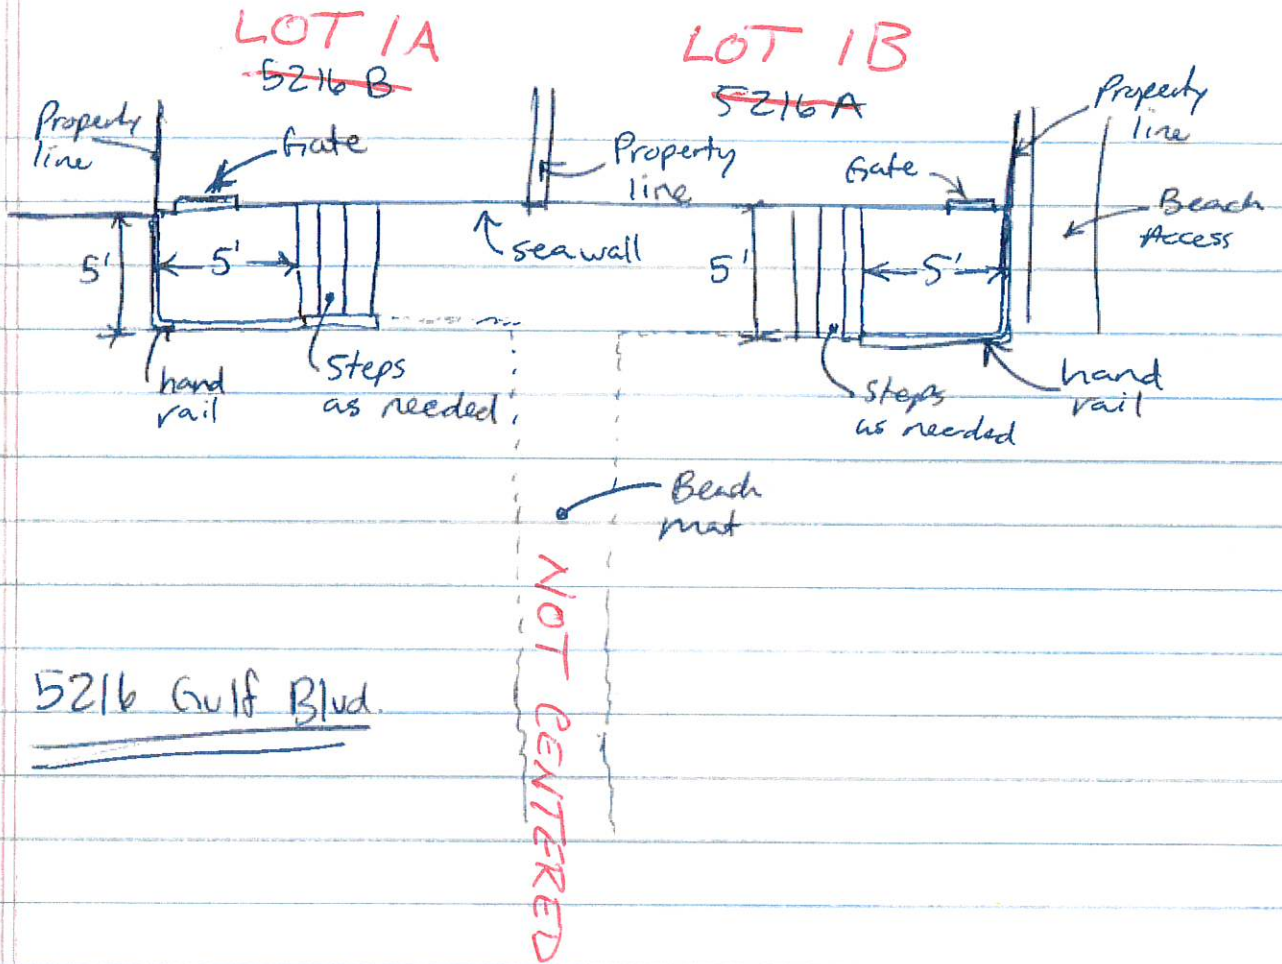 LOT 1A
LOT 1B
5216 B
5216 A
Property
line
Gate
Property
line
Gate
Property
line
Beach
Access
seawall
5'
5'
5'
5'
hand
rail
Steps
as needed
Steps
as needed
hand
rail
Beach
mat
NOT CENTERED
5216 Gulf Blvd.